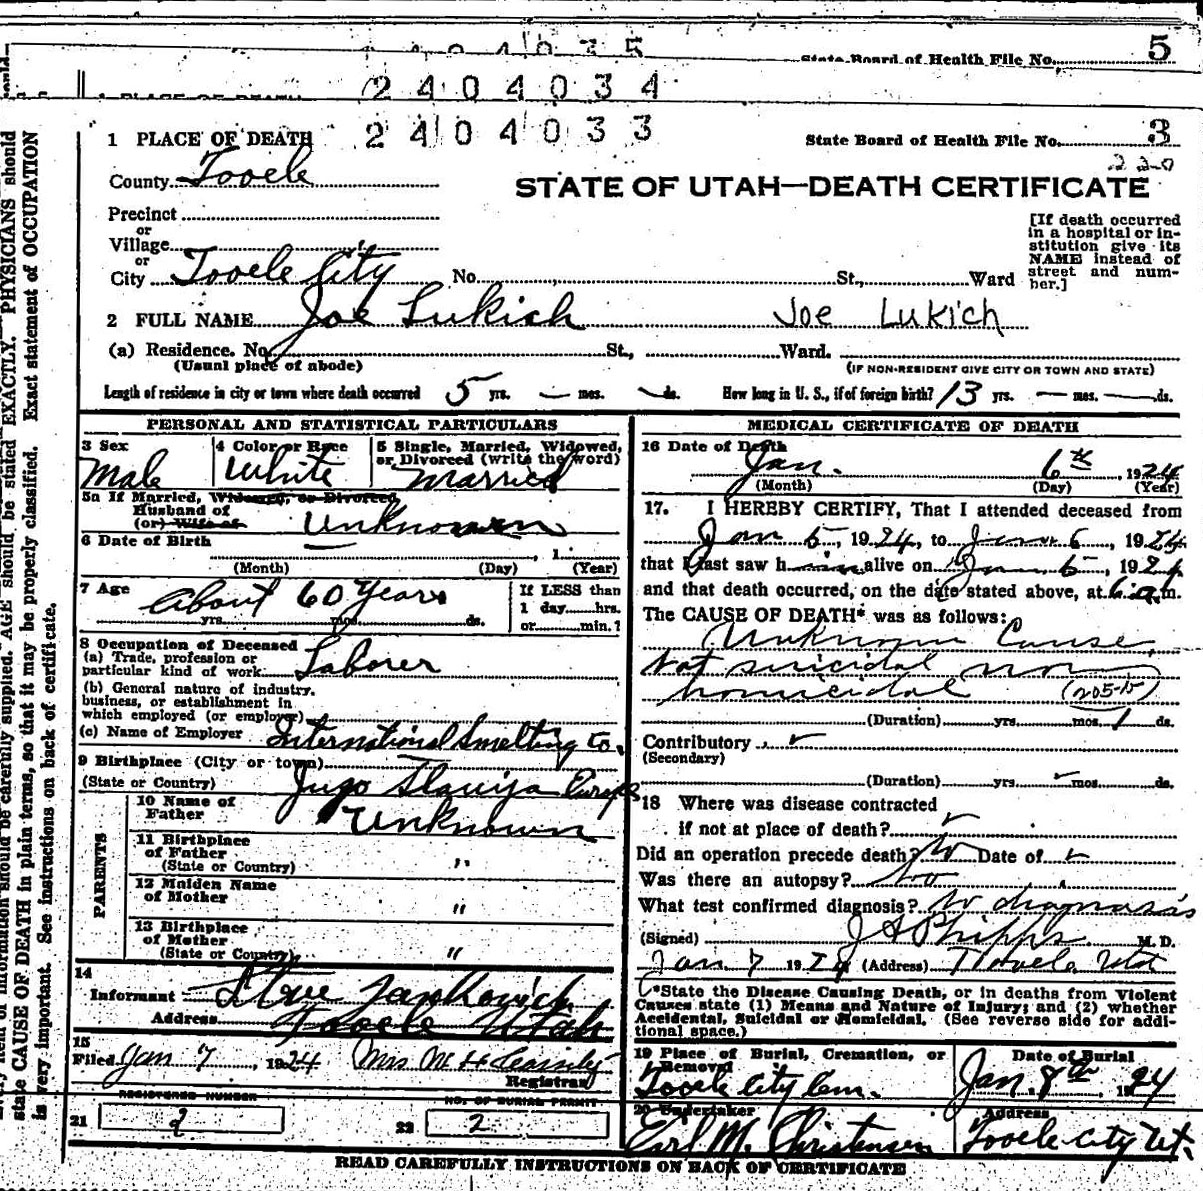 2404035
State Board of Health File No. 5
2404034
1 PLACE OF DEATH 2404033 State Board of Health File No. 3
220
County Tooele
STATE OF UTAH—DEATH CERTIFICATE
Precinct
or
Village
or
City Tooele City No. St., Ward
[If death occurred
in a hospital or in-
stitution give its
NAME instead of
street and num-
ber.]
2 FULL NAME Joe Lukich Joe Lukich
(a) Residence. No. St., Ward.
(Usual place of abode) (IF NON-RESIDENT GIVE CITY OR TOWN AND STATE)
Length of residence in city or town where death occurred 5 yrs. — mos. — ds. How long in U. S., if of foreign birth? 13 yrs. — mos. — ds.
PERSONAL AND STATISTICAL PARTICULARS
3 Sex 4 Color or Race 5 Single, Married, Widowed,
or Divorced (write the word)
Male White Married
5a If Married, Widowed, or Divorced
Husband of
(or) Wife of Unknown
6 Date of Birth , 1
(Month) (Day) (Year)
7 Age About 60 Years
yrs. mos. ds.
If LESS than
1 day......hrs.
or......min.?
8 Occupation of Deceased
(a) Trade, profession or
particular kind of work Laborer
(b) General nature of industry,
business, or establishment in
which employed (or employer)
(c) Name of Employer International Smelting Co.
9 Birthplace (City or town)
(State or Country) Jugo Slavija Europe
PARENTS
10 Name of
Father Unknown
11 Birthplace
of Father
(State or Country) "
12 Maiden Name
of Mother "
13 Birthplace
of Mother
(State or Country) "
14
Informant Steve
Address Tooele Utah
15
Filed Jan 7 1924 Mrs M H
Registrar
REGISTERED NUMBER NO. OF BURIAL PERMIT
21 2 22 2
MEDICAL CERTIFICATE OF DEATH
16 Date of Death
Jan. 6th 1924
(Month) (Day) (Year)
17. I HEREBY CERTIFY, That I attended deceased from
Jan 5, 1924, to Jan 6, 1924
that I last saw him alive on Jan 5, 1924
and that death occurred, on the date stated above, at 6 a.m.
The CAUSE OF DEATH* was as follows:
Unknown Cause,
Not suicidal nor
homicidal (205-b)
(Duration) yrs. mos. 1 ds.
Contributory
(Secondary)
(Duration) yrs. mos. ds.
18 Where was disease contracted
if not at place of death?
Did an operation precede death? No Date of
Was there an autopsy? No
What test confirmed diagnosis? No diagnosis
(Signed) J A Phipps M. D.
Jan 7 1924 (Address) Tooele Utah
*State the Disease Causing Death, or in deaths from Violent
Causes state (1) Means and Nature of Injury; and (2) whether
Accidental, Suicidal or Homicidal. (See reverse side for addi-
tional space.)
19 Place of Burial, Cremation, or
Removed Date of Burial
Tooele City Cem. Jan. 8th 1924
20 Undertaker Address
Earl M. Christensen Tooele City Ut.
READ CAREFULLY INSTRUCTIONS ON BACK OF CERTIFICATE
information should be carefully supplied. AGE should be stated EXACTLY. PHYSICIANS should
state CAUSE OF DEATH in plain terms, so that it may be properly classified. Exact statement of OCCUPATION
is very important. See instructions on back of certificate.